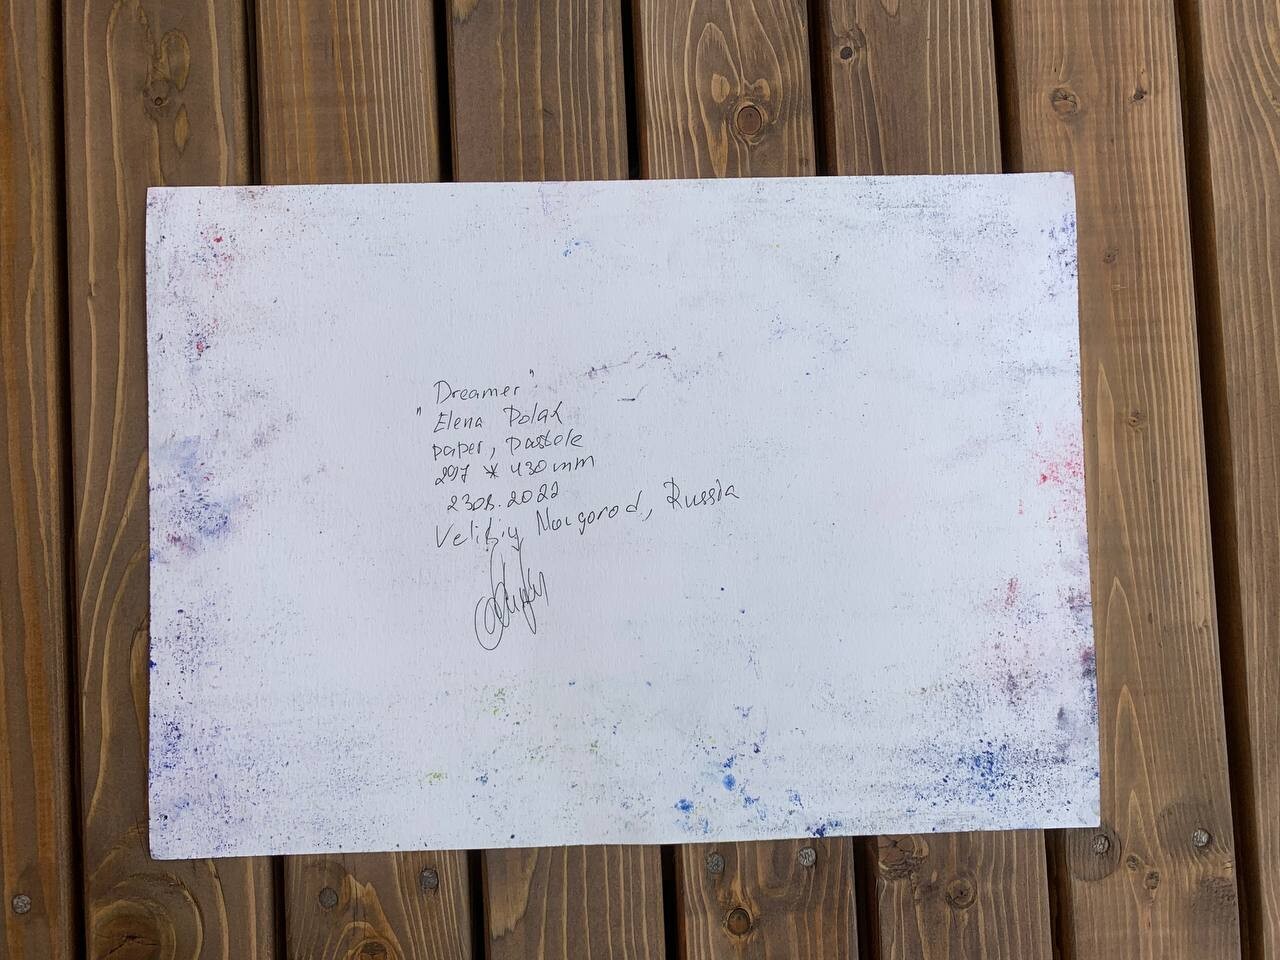 "Dreamer"
Elena Polak
paper, pastele
297 * 430 mm
2022
Velikiy Novgorod, Russia